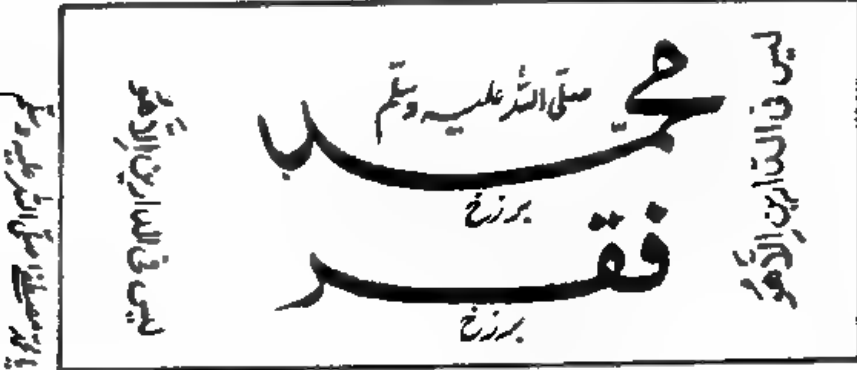 لیس فی الدارین الا ھُو
محمد صلی اللہ علیہ وسلّم
برزخ
فقر
برزخ
لیس فی الدارین الا ھُو
صلی اللہ علیہ وسلم